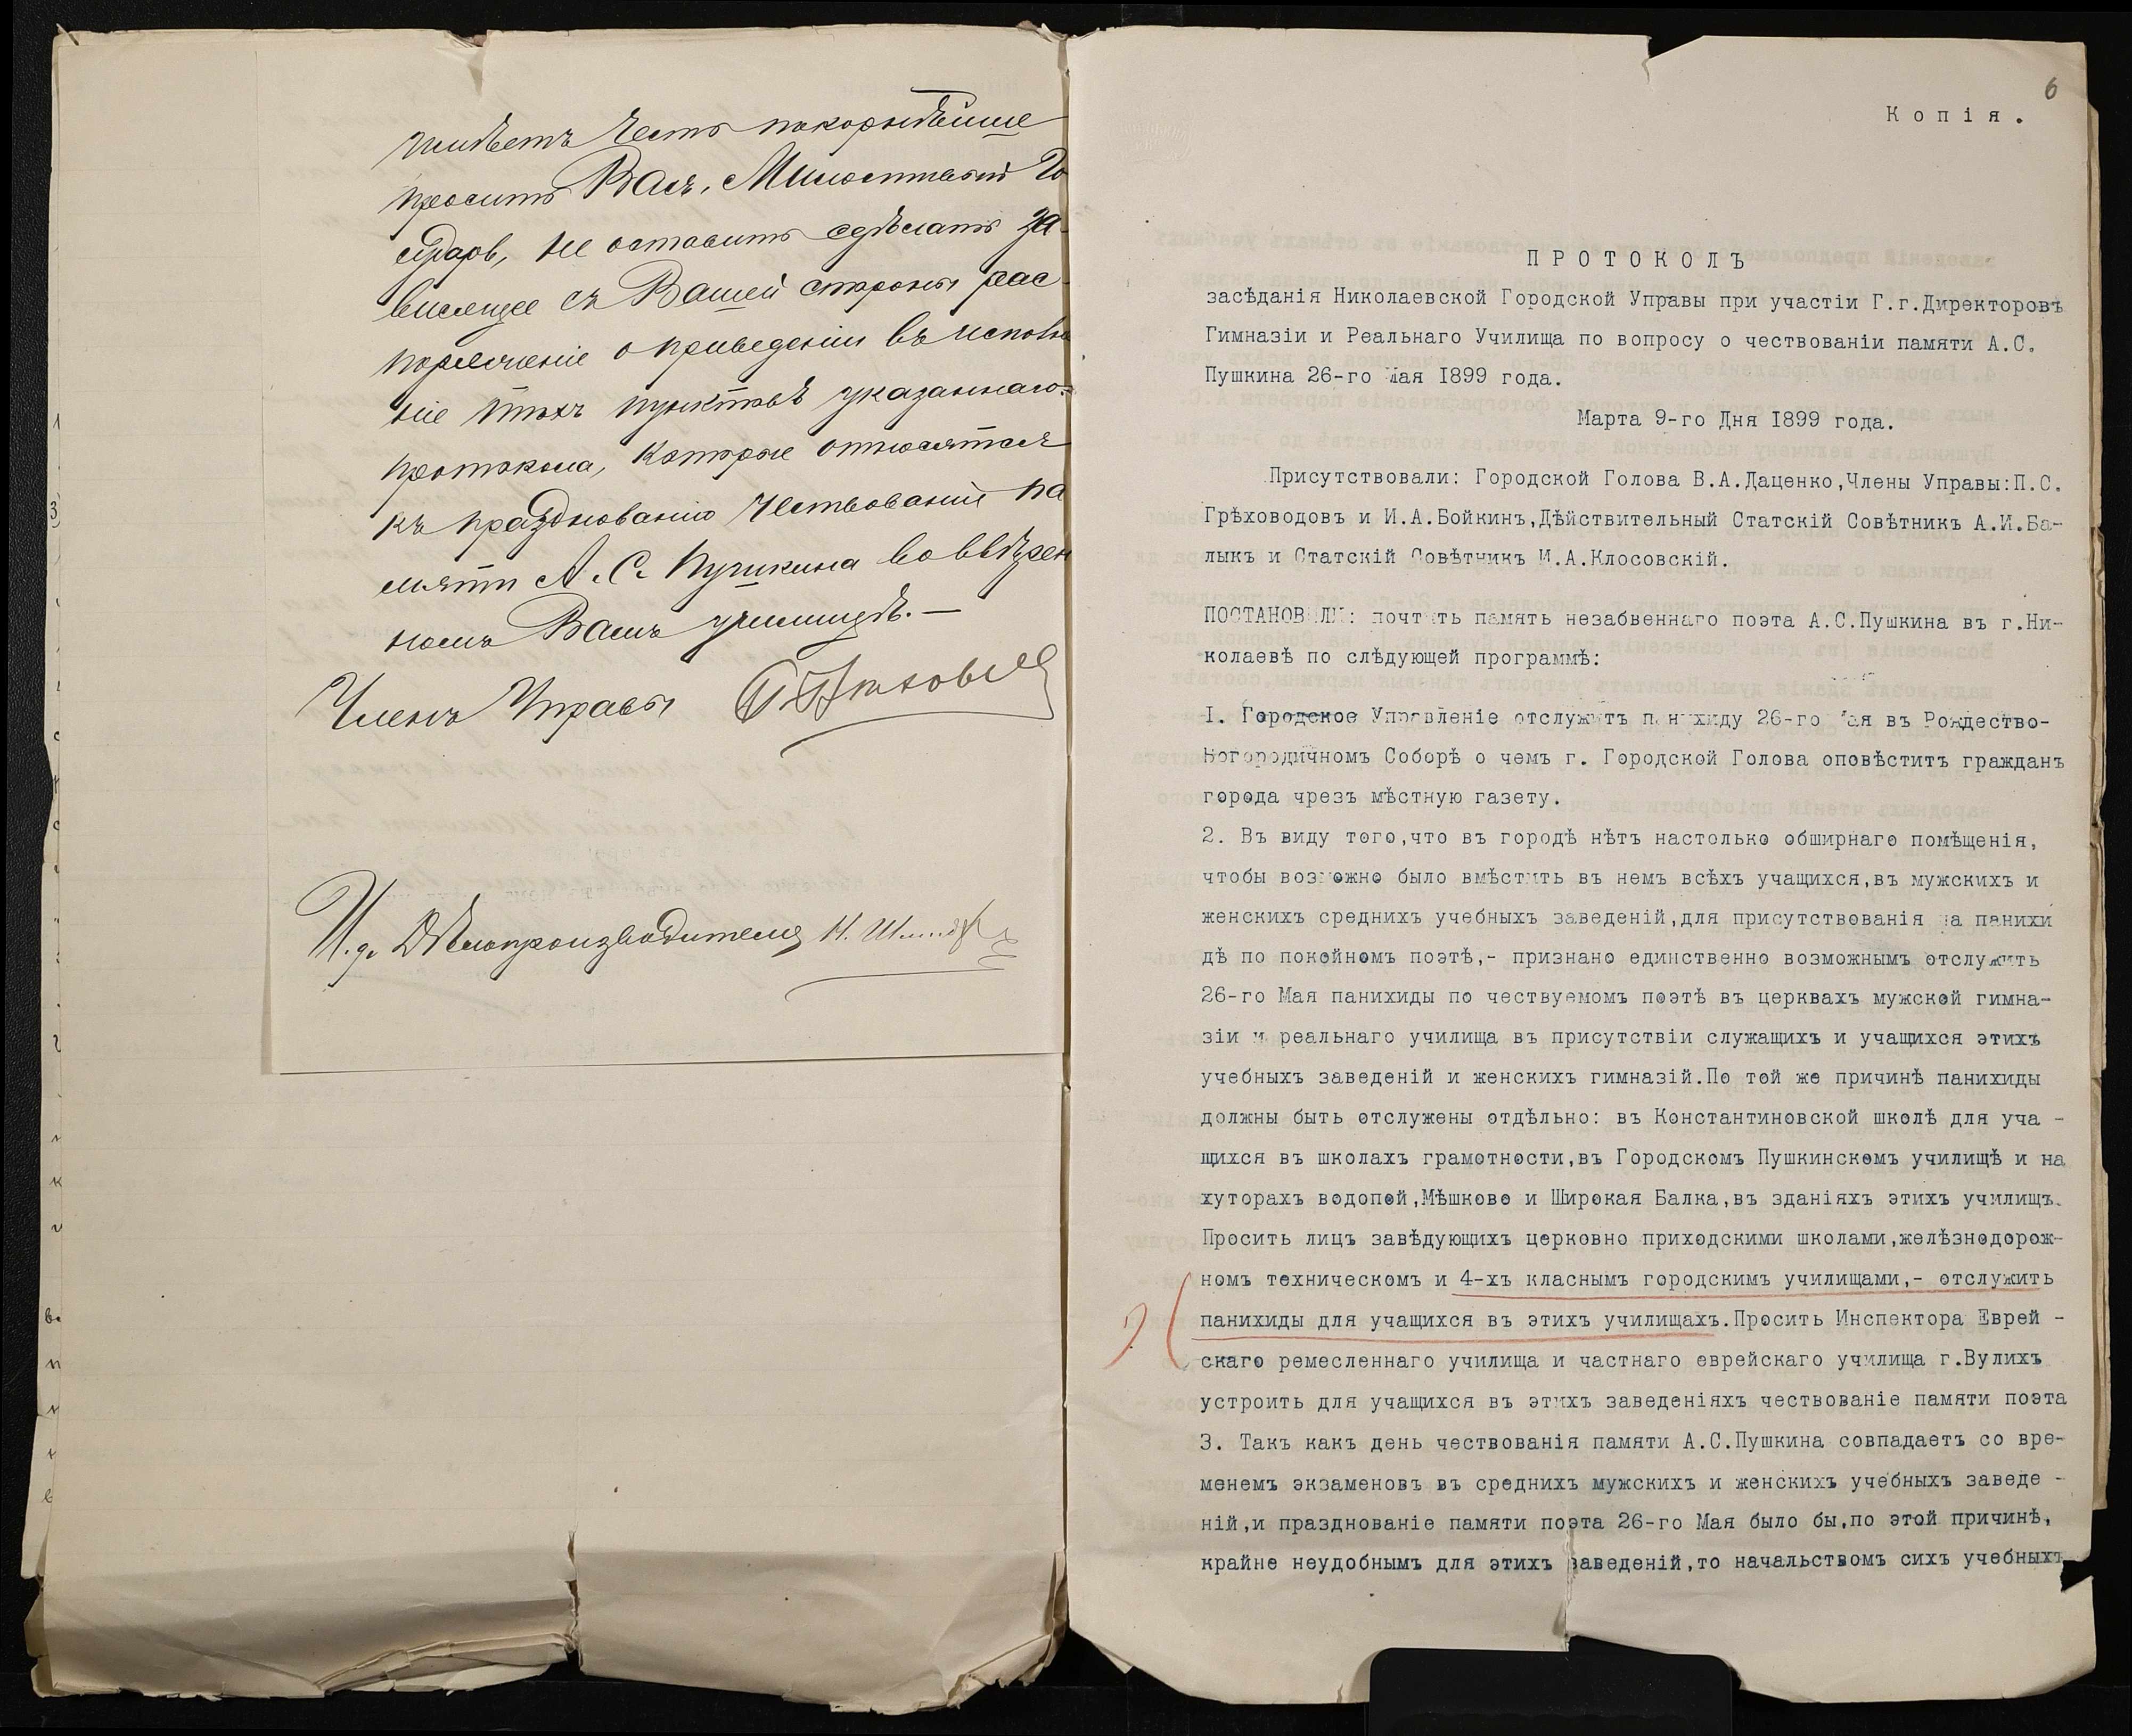 имѣетъ честь покорнѣйше
просить Васъ, Милостивый Го
сударь, не оставить сдѣлать за-
висящее съ Вашей стороны рас-
поряженіе о приведеніи въ исполне
ніе тѣхъ пунктовъ указаннаго
протокола, которые относятся
къ празднованію чествованія па
мяти А. С. Пушкина во ввѣрен
номъ Вамъ училищѣ. —
Членъ Управы
И. д. Дѣлопроизводителя Н.
6
Копія.
ПРОТОКОЛЪ
засѣданія Николаевской Городской Управы при участіи Г.г.Директоровъ
Гимназіи и Реальнаго Училища по вопросу о чествованіи памяти А.С.
Пушкина 26-го Мая 1899 года.
Марта 9-го Дня 1899 года.
Присутствовали: Городской Голова В.А.Даценко,Члены Управы:П.С.
Грѣховодовъ и И.А.Бойкинъ,Дѣйствительный Статскій Совѣтникъ А.И.Ба-
лыкъ и Статскій Совѣтникъ И.А.Клосовскій.
ПОСТАНОВИЛИ: почтить память незабвеннаго поэта А.С.Пушкина въ г.Ни-
колаевѣ по слѣдующей программѣ:
I. Городское Управленіе отслужитъ панихиду 26-го Мая въ Рождество-
Богородичномъ Соборѣ о чемъ г. Городской Голова оповѣститъ гражданъ
города чрезъ мѣстную газету.
2. Въ виду того,что въ городѣ нѣтъ настолько обширнаго помѣщенія,
чтобы возможно было вмѣстить въ немъ всѣхъ учащихся,въ мужскихъ и
женскихъ среднихъ учебныхъ заведеній,для присутствованія на панихи
дѣ по покойномъ поэтѣ,- признано единственно возможнымъ отслужить
26-го Мая панихиды по чествуемомъ поэтѣ въ церквахъ мужской гимна-
зіи и реальнаго училища въ присутствіи служащихъ и учащихся этихъ
учебныхъ заведеній и женскихъ гимназій.По той же причинѣ панихиды
должны быть отслужены отдѣльно: въ Константиновской школѣ для уча -
щихся въ школахъ грамотности,въ Городскомъ Пушкинскомъ училищѣ и на
хуторахъ водопой,Мѣшково и Широкая Балка,въ зданіяхъ этихъ училищъ.
Просить лицъ завѣдующихъ церковно приходскими школами,желѣзнодорож-
номъ техническомъ и 4-хъ класнымъ городскимъ училищами,- отслужить
панихиды для учащихся въ этихъ училищахъ.Просить Инспектора Еврей -
скаго ремесленнаго училища и частнаго еврейскаго училища г.Вулихъ
устроить для учащихся въ этихъ заведеніяхъ чествованіе памяти поэта
3. Такъ какъ день чествованія памяти А.С.Пушкина совпадаетъ со вре-
менемъ экзаменовъ въ среднихъ мужскихъ и женскихъ учебныхъ заведе -
ній,и празднованіе памяти поэта 26-го Мая было бы,по этой причинѣ,
крайне неудобнымъ для этихъ заведеній,то начальствомъ сихъ учебныхъ